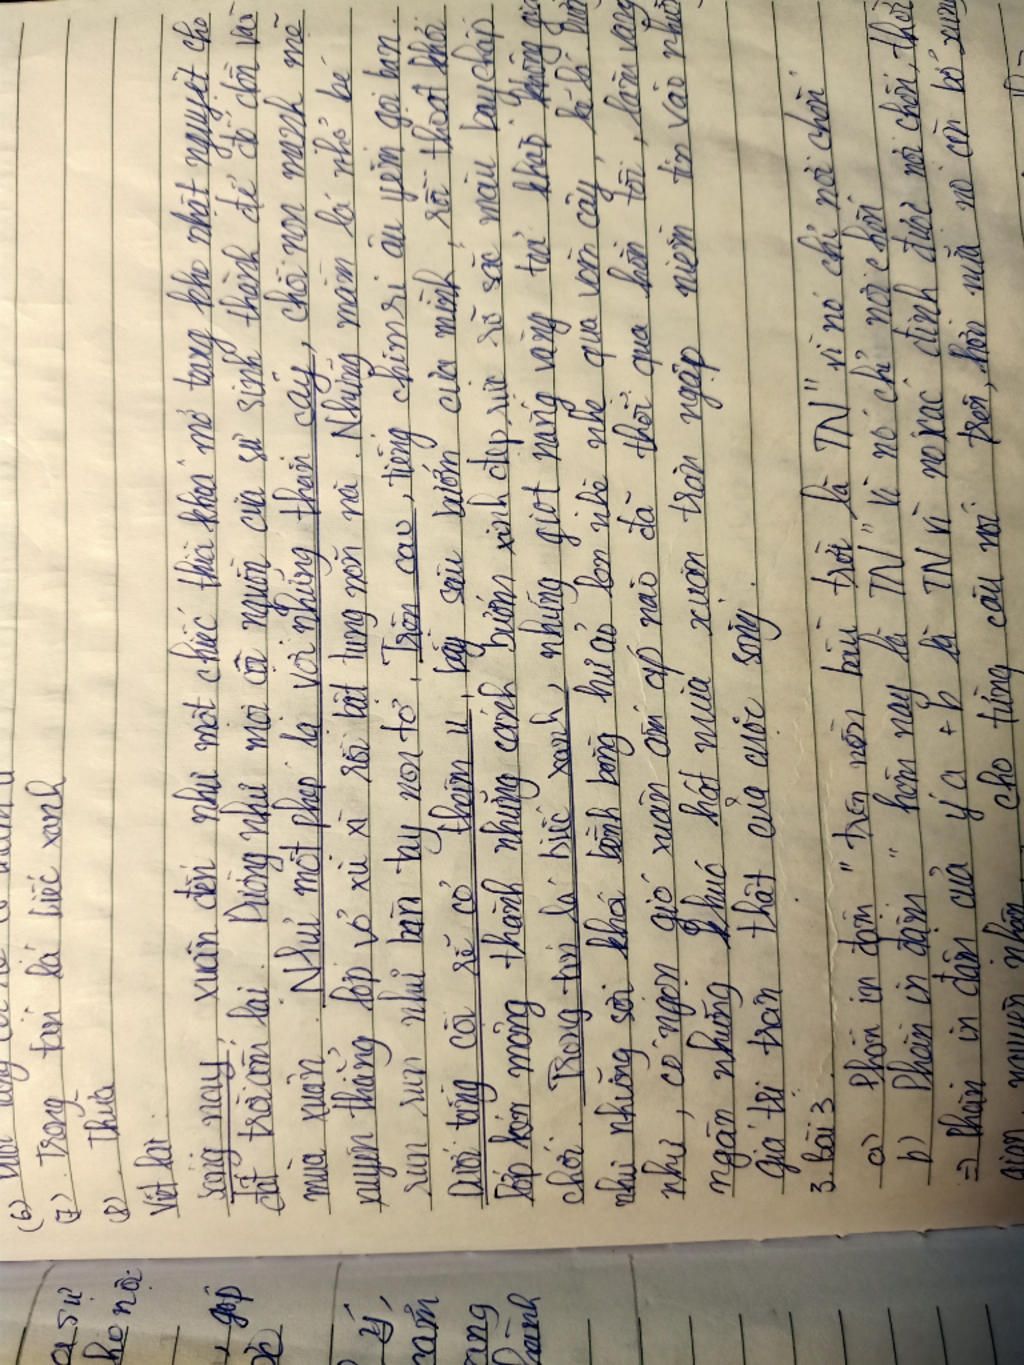 (6)
(7). Trong tán lá biếc xanh
(8). Thưa
Viết lại.
Sáng nay, xuân đến như một chiếc thìa khoá mở tung kho nhật nguyệt cho
đất trời ấm lại. Dường như mọi cội nguồn của sự sinh thành để đó chờ vào
mùa xuân. Như một phép lạ với những thân cây, chồi non mạnh mẽ
xuyên thẳng lớp vỏ xù xì rồi bật tung nõn nà. Những mầm lá nhỏ bé
run run như bàn tay non tơ. Trên cao, tiếng chim ri âu yếm gọi bạn.
Dưới từng cội rễ cỏ thâm u, bầy sâu bướm của mình, rồi thoát khỏi
lớp kén mỏng thành những cánh bướm xinh đẹp, rực rỡ sắc màu bay chấp
chới. Trong tán lá biếc xanh, những giọt nắng vàng tựa khắp không
như những sợi khói bềnh bồng hư ảo len nhè nhẹ qua vòm cây, kẽ lá
như, có ngọn gió xuân ấm áp nào đã thổi qua hồn tôi,
ngần những khúc hát mùa xuân tràn ngập niềm tin vào những
giá trị trân thật của cuộc sống.
3. Bài 3
a) Phần in đậm "trên nền bầu trời" là TN" vì nó chỉ nơi chốn
b) Phần in đậm " hôm nay là TN" vì nó chỉ nơi chốn
=> Phần in đậm của ý a + b là TN vì nó xác định được nơi chốn, thời
gian, nguyên nhân cho từng câu nói trên, hơn nữa nó còn bổ sung
hơ nà.
, góp
ý,